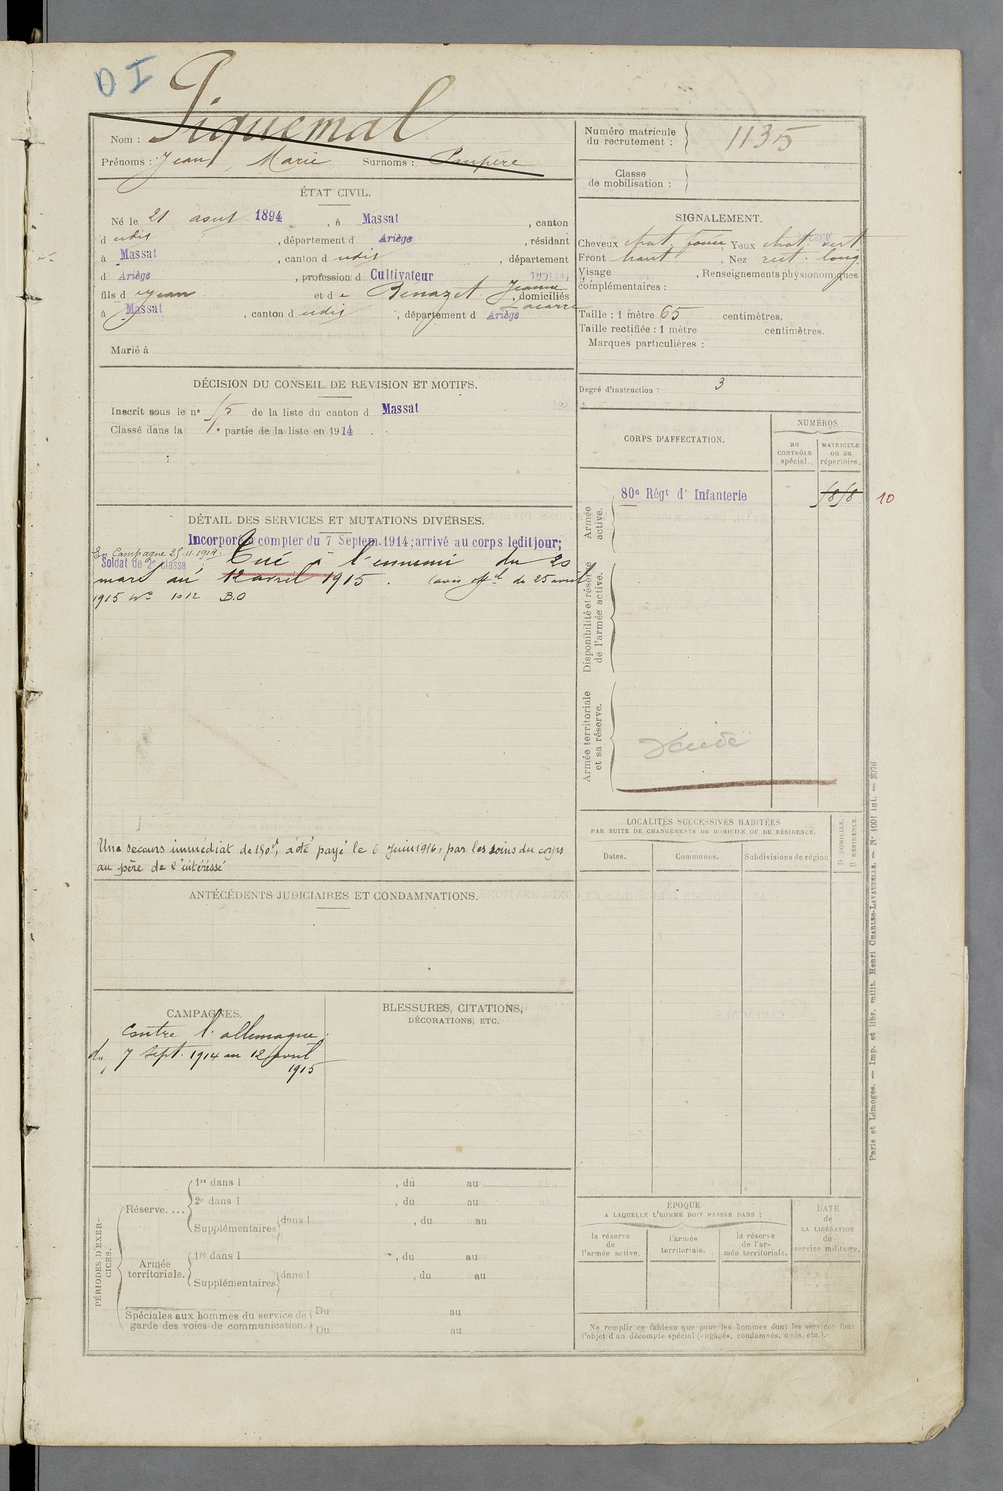 D I
Nom : Piquemal
Prénoms : Jean Marie Surnoms :
ÉTAT CIVIL.
Né le 21 août 1894, à Massat, canton
d udis, département d Ariège, résidant
à Massat, canton d udis, département
d Ariège, profession d Cultivateur
fils d Jean et d e Benazet Jeanne, domiciliés
à Massat, canton d udis, département d Ariège
Marié à
DÉCISION DU CONSEIL DE REVISION ET MOTIFS.
Inscrit sous le n° 15 de la liste du canton d Massat
Classé dans la 1e partie de la liste en 1914.
DÉTAIL DES SERVICES ET MUTATIONS DIVERSES.
Incorporé à compter du 7 Septem. 1914; arrivé au corps ledit jour;
En Campagne 25.11.1914.
Soldat de 2e classe Tué à l'ennemi du 20
mars au 12 avril 1915. (avis off el du 25 avril
1915 No 1012 B.O
Une secours immédiat de 150f, a été payé le 6 Juin 1916, par les soins du corps
au père de l'intéressé
ANTÉCÉDENTS JUDICIAIRES ET CONDAMNATIONS.
CAMPAGNES.
Contre l'allemagne
du 7 sept. 1914 au 12 avril
1915
BLESSURES, CITATIONS,
DÉCORATIONS, ETC.
PÉRIODES D'EXER-
CICES.
Réserve....
1re dans l , du au
2e dans l , du au
Supplémentaires dans l , du au
Armée
territoriale.
1re dans l , du au
Supplémentaires dans l , du au
Spéciales aux hommes du service de
garde des voies de communication.
Du au
Du au
Numéro matricule
du recrutement : 1135
Classe
de mobilisation :
SIGNALEMENT.
Cheveux chat. foncé Yeux chat. vert
Front haut, Nez rect. long
Visage , Renseignements physionomiques
complémentaires :
Taille : 1 mètre 65 centimètres.
Taille rectifiée : 1 mètre centimètres.
Marques particulières :
Degré d'instruction : 3
CORPS D'AFFECTATION.
NUMÉROS
AU
CONTRÔLE
spécial.
MATRICULE
OU AU
répertoire.
Armée
active.
80e Régt d' Infanterie
1818
10
Disponibilité et réserve
de l'armée active.
Armée territoriale
et sa réserve.
LOCALITÉS SUCCESSIVES HABITÉES
PAR SUITE DE CHANGEMENTS DE DOMICILE OU DE RÉSIDENCE.
Dates.
Communes.
Subdivisions de région
D DOMICILE.
R RÉSIDENCE.
ÉPOQUE
A LAQUELLE L'HOMME DOIT PASSER DANS :
la réserve
de
l'armée active.
l'armée
territoriale.
la réserve
de l'ar-
mée territoriale.
DATE
de
LA LIBÉRATION
du
service militaire.
Ne remplir ce tableau que pour les hommes dont les services font
l'objet d'un décompte spécial (engagés, condamnés, omis, etc.).
Paris et Limoges. — Imp. et libr. milit. Henri CHARLES-LAVAUZELLE. — N° 1001 int. — 2076